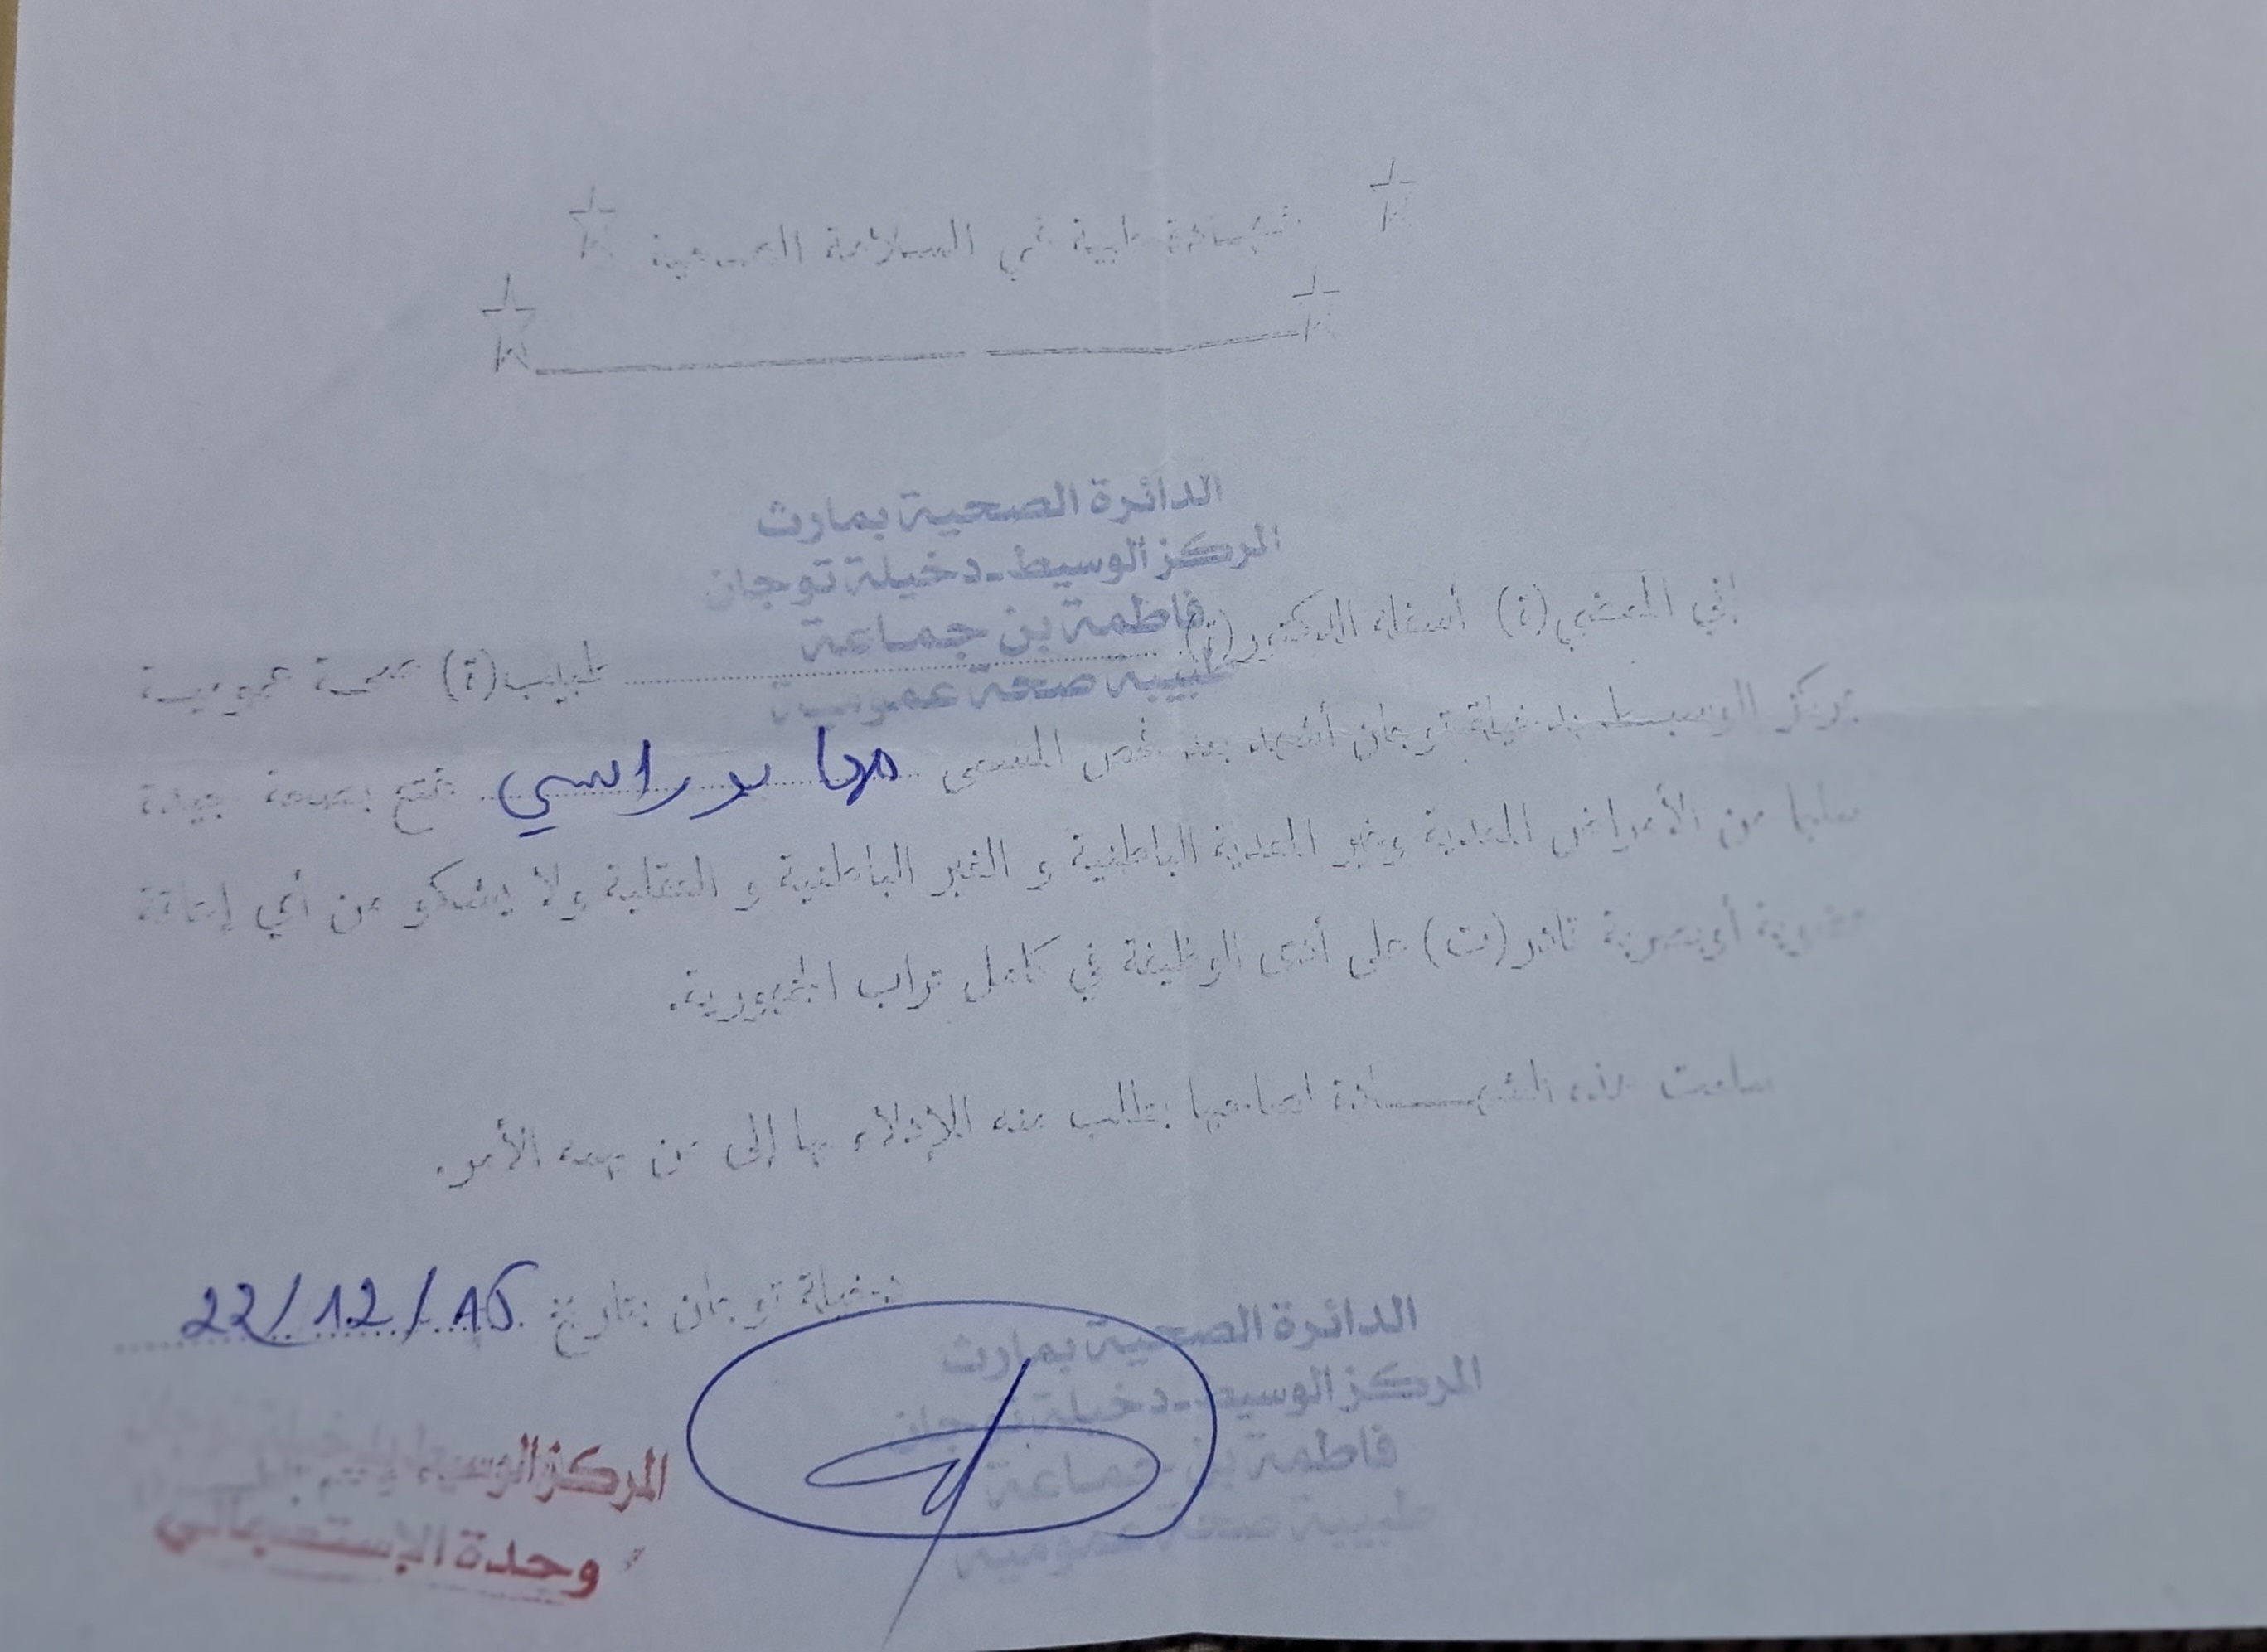 شهادة طبية في السلامة الصحية
الدائرة الصحية بمارث
المركز الوسيط - دخيلة توجان
فاطمة بن جماعة
طبيبة صحة عمومية
إني الممضي(ة) أسفله الدكتور(ة) .......... طبيب(ة) صحة عمومية
بمركز الوسيط بدخيلة توجان أشهد بعد فحص المسمى مها بوراسي يتمتع بصحة جيدة
سليما من الأمراض المعدية وغير المعدية الباطنية و الغير الباطنية و العقلية ولا يشكو من أي إعاقة
عضوية أو بصرية قادر(ت) على أدى الوظيفة في كامل تراب الجمهورية.
سلمت هذه الشهــــادة لصاحبها بطلب منه للإدلاء بها إلى من يهمه الأمر.
دخيلة توجان بتاريخ 22/12/15
الدائرة الصحية بمارث
المركز الوسيط - دخيلة توجان
فاطمة بن جماعة
طبيبة صحة عمومية
المركز الوسيط بدخيلة توجان
وحدة الإستعجالي